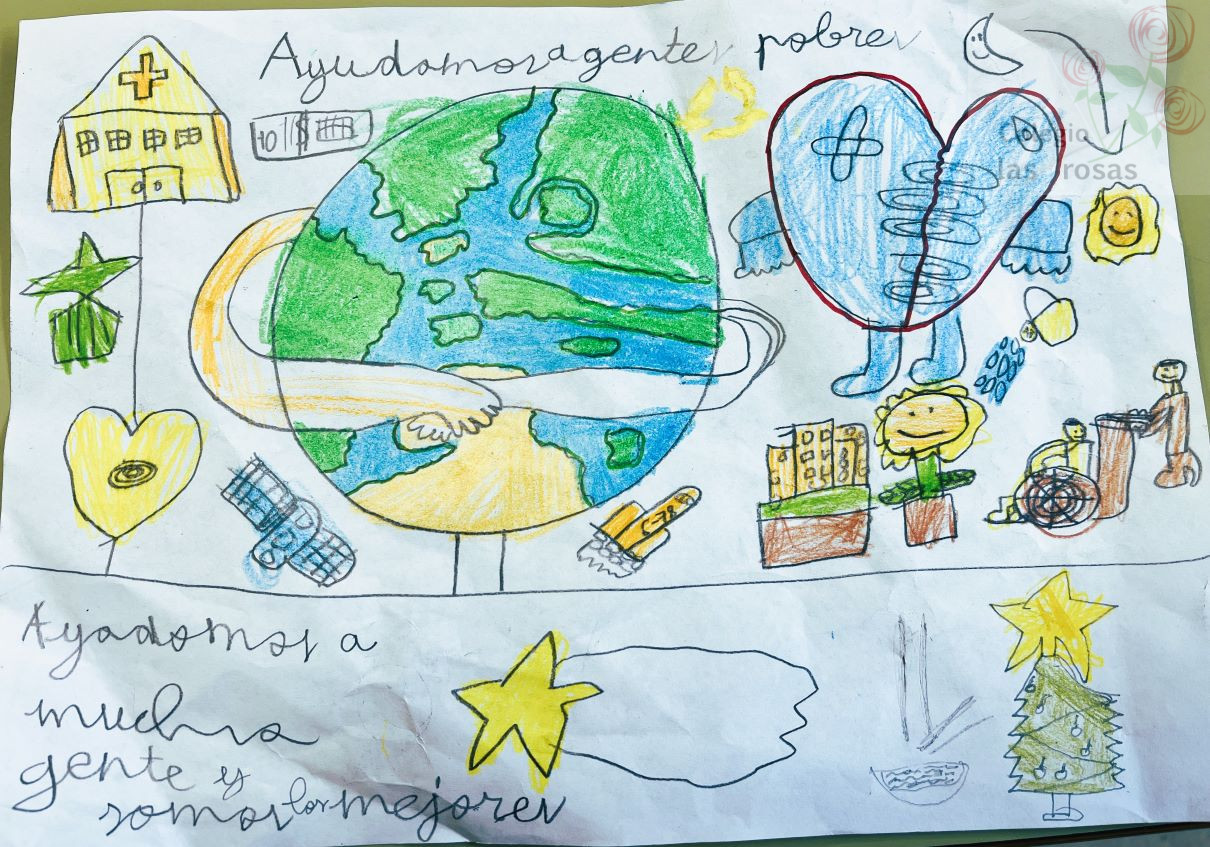 Ayudamos a gente pobres
10 $
Colegio
las rosas
C-78
Ayadamos a
mucha
gente y
somos los mejores